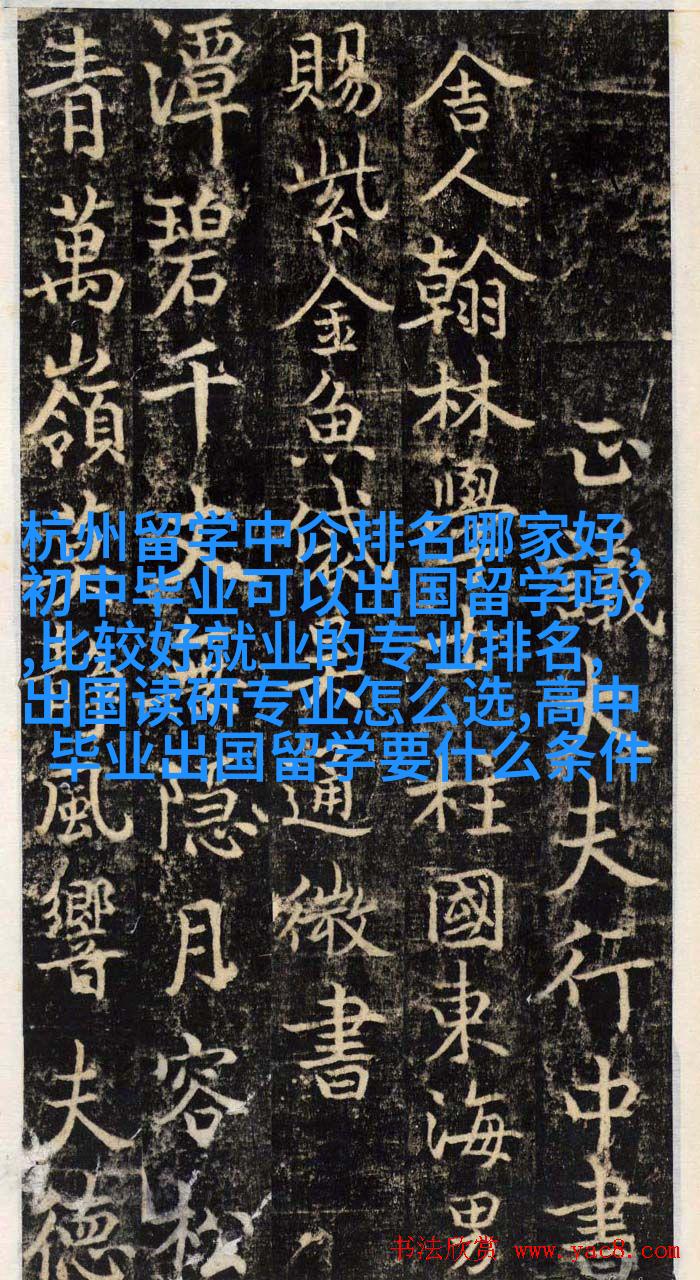 正議大夫行中書
舍人翰林學柱國東海男
賜紫金魚袋通微書
潭碧千丈隱月容松
青萬嶺風響夫德
杭州留学中介排名哪家好,
初中毕业可以出国留学吗?
,比较好就业的专业排名,
出国读研专业怎么选,高中
毕业出国留学要什么条件
书法欣赏 www.yac8.com